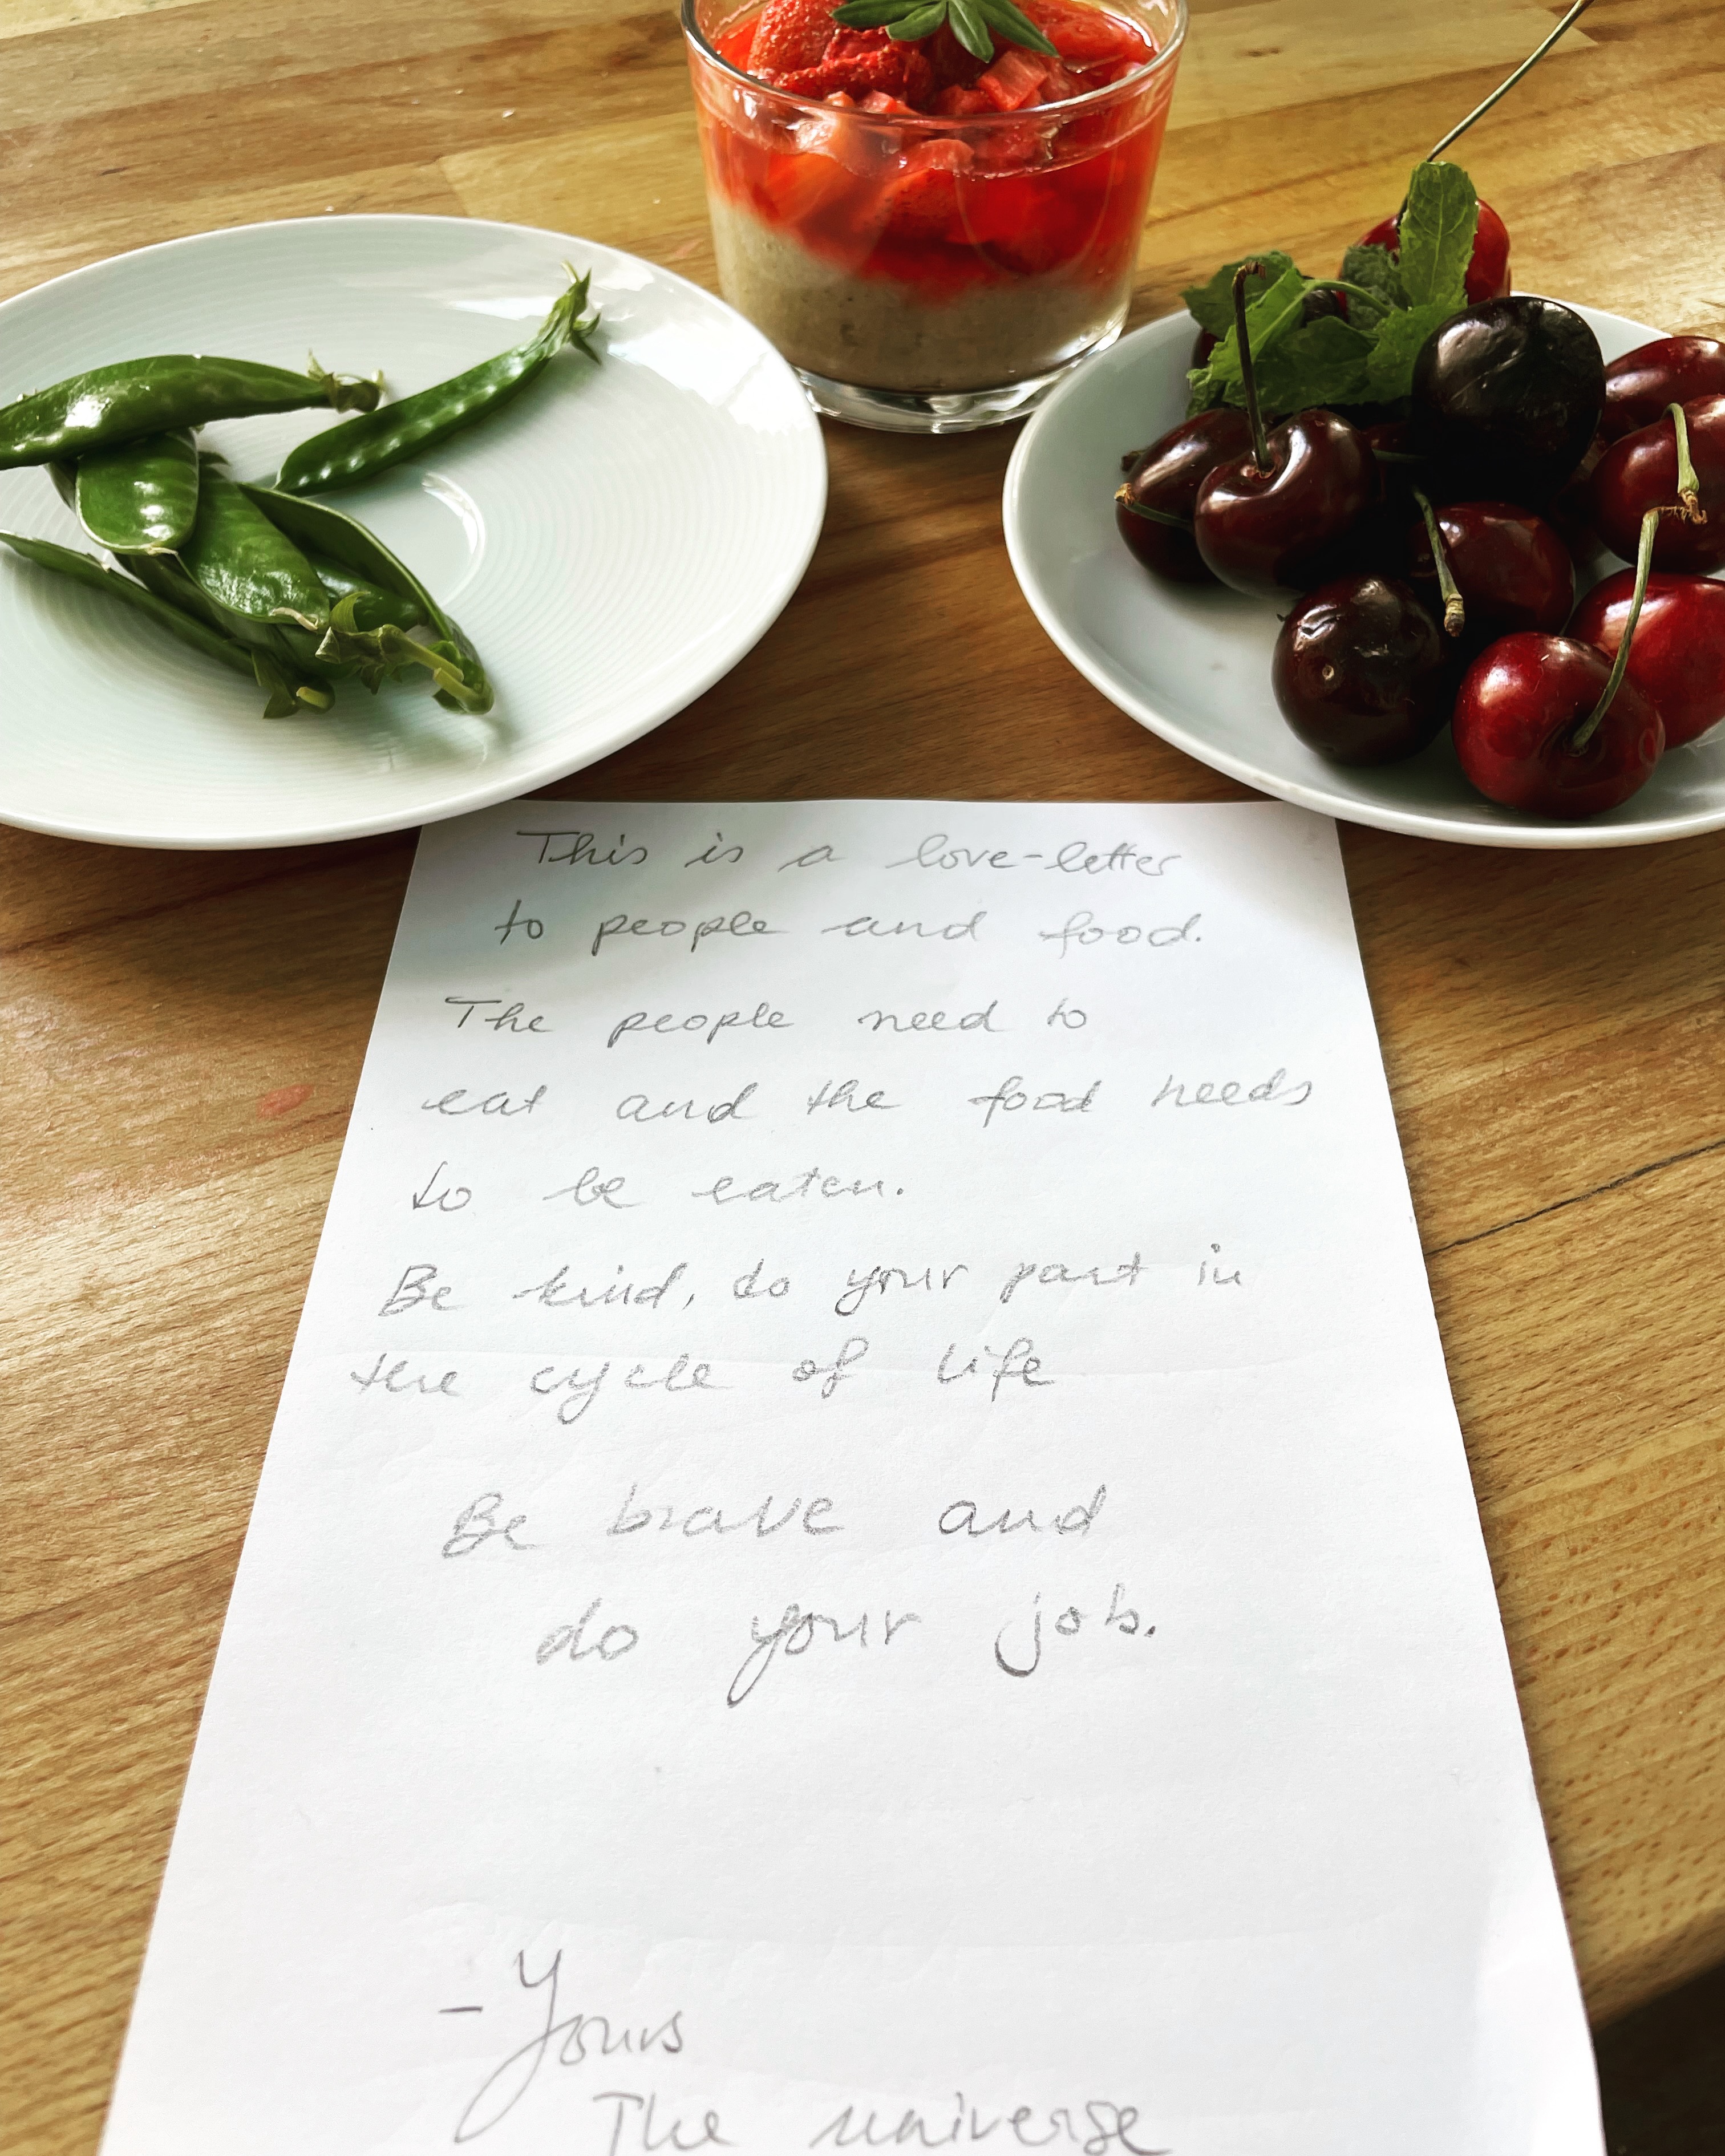 This is a love-letter
to people and food.
The people need to
eat and the food needs
to be eaten.
Be kind, do your part in
the cycle of life
Be brave and
do your job.
- Yours
The universe